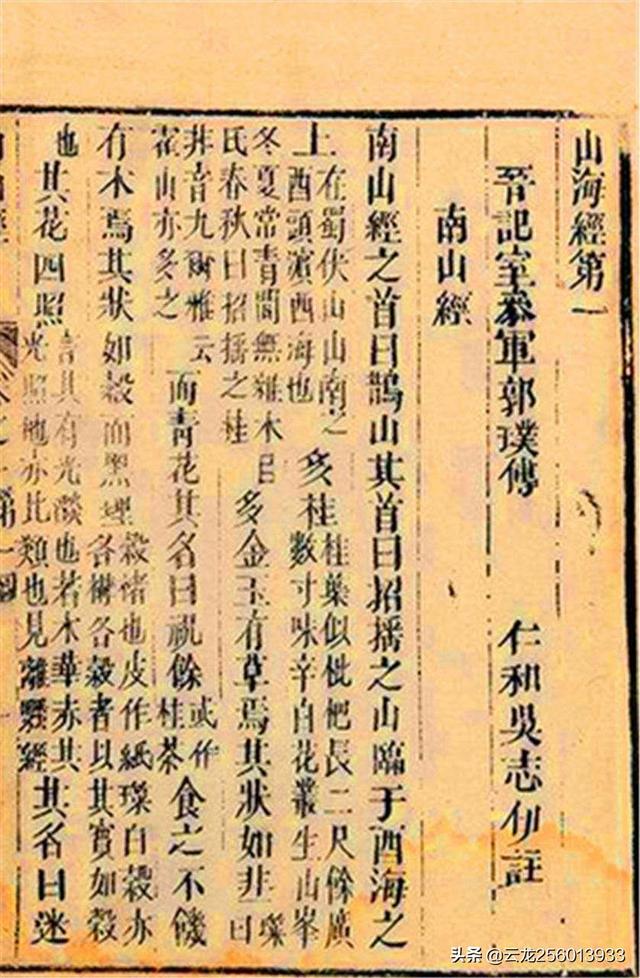 山海經第一
晉記室叅軍郭璞傳 仁和吳志伊註
南山經
南山經之首曰鵲山其首曰招搖之山臨于西海之
上在蜀伏山山南之西頭濱西海也多桂桂葉似枇杷長二尺餘廣數寸味辛白花叢生山峯
冬夏常青間無雜木呂氏春秋曰招搖之桂多金玉有草焉其狀如韭璨曰
韭音九爾雅云霍山亦多之而青花其名曰祝餘或作桂荼食之不饑
有木焉其狀如榖而黑理榖楮也皮作紙璨曰榖亦名構名榖者以其實如榖
也其花四照言其有光燄也若木華赤其光照地亦此類也見離騷經其名曰迷
头条@云龙256013933